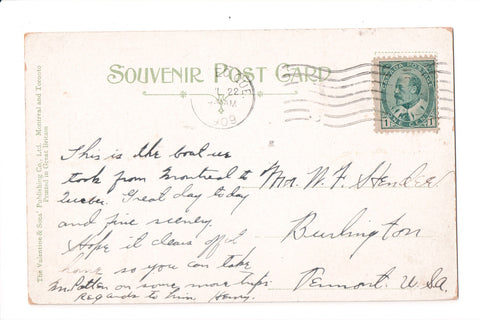 SOUVENIR POST CARD
QUE.
JUL 22
M
09
CANADA POSTAGE
1 1
The Valentine & Sons' Publishing Co., Ltd., Montreal and Toronto
Printed in Great Britain
This is the boat we
took from Montreal to
Quebec. Great day today
and fine scenery
Hope it clears off at
home so you can take
Mr Patten on some more trips
Regards to him. Henry.
Mr. W. F. Hendee
Burlington
Vermont. U.S.A